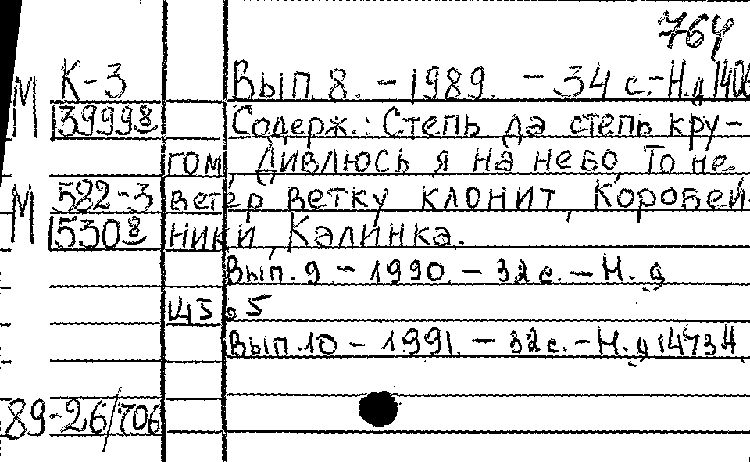 764
М К-3 Вып. 8. - 1989. - 34 с. - Н. д 1406
39998 Содерж.: Степь да степь кру-
гом, Дивлюсь я на небо, То не
М 582-3 ветер ветку клонит, Коробей-
5308 ники, Калинка.
Вып. 9 - 1990. - 32 с. - Н. д
145.5
Вып. 10 - 1991. - 32 с. - Н. д 14734
89-26/706